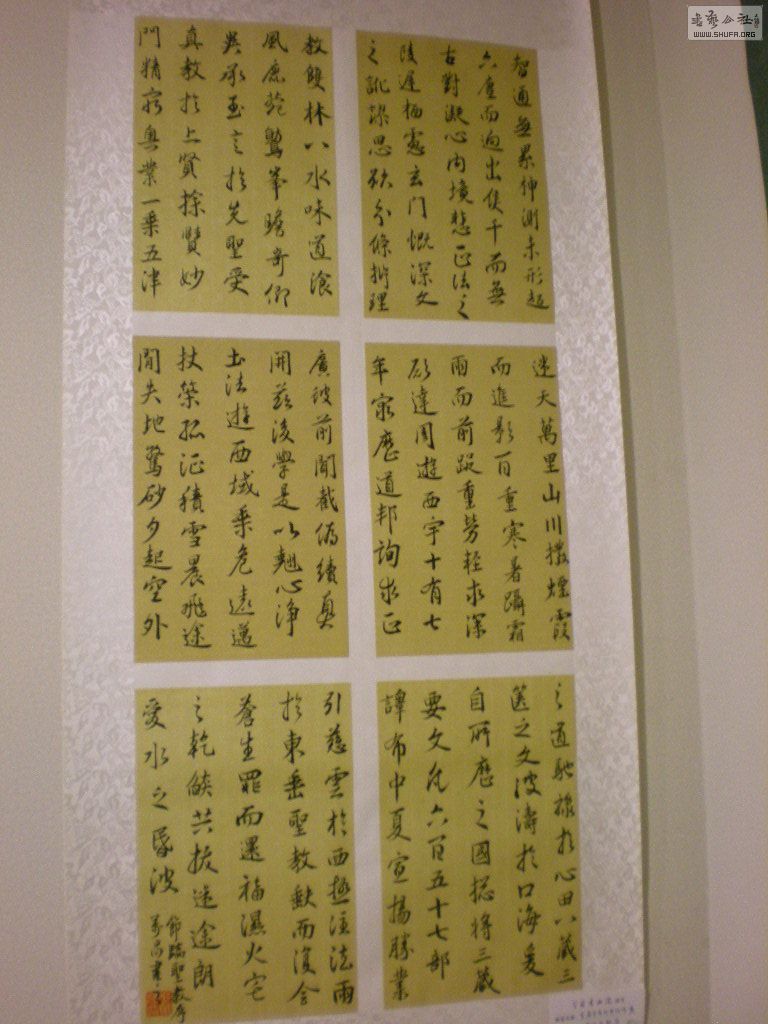 智通無累神測未形超
六塵而迥出隻千而無
古對凝心內境悲正法之
陵遲栖慮玄門慨深文
之訛謬思欲分條析理
廣彼前聞截偽續真
開茲後學是以翹心淨
土法遊西域乘危遠邁
杖策孤征積雪晨飛途
閒失地驚砂夕起空外
迷天萬里山川撥煙霞
而進影百重寒暑躡霜
雨而前蹤重勞輕求深
願達周遊西宇十有七
年窮歷道邦詢求正
教雙林八水味道飡
風鹿苑鷲峯瞻奇仰
異承至言於先聖受
真教於上賢探賾妙
門精窮奧業一乘五律
之道馳驟於心田八藏三
篋之文波濤於口海爰
自所歷之國總將三藏
要文凡六百五十七部
譯布中夏宣揚勝業
引慈雲於西極注法雨
於東垂聖教缺而復全
蒼生罪而還福濕火宅
之乾焰共拔迷途朗
愛水之昏波
節臨聖教序
書藝公社
WWW.SHUFA.ORG